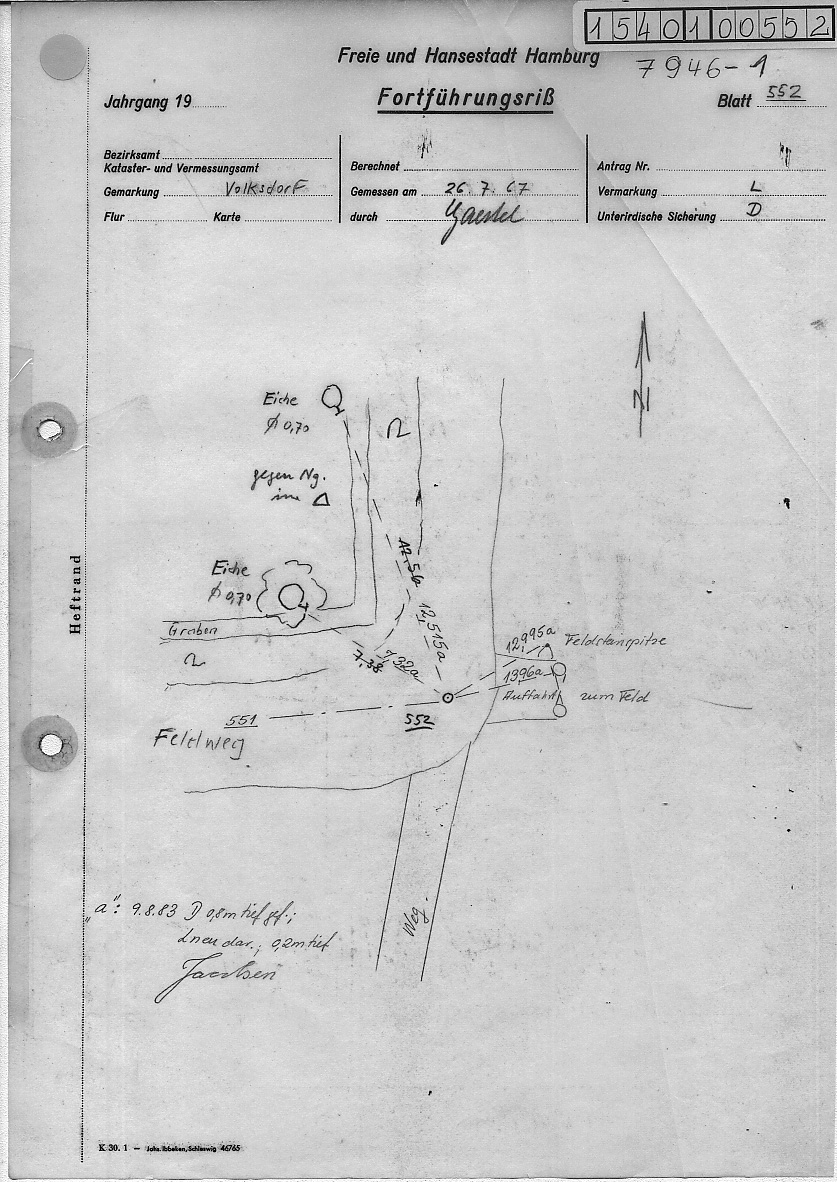 15401 00552
Freie und Hansestadt Hamburg
7946-1
Jahrgang 19
Fortführungsriß
Blatt 552
Bezirksamt
Kataster- und Vermessungsamt
Berechnet
Antrag Nr.
Gemarkung Volksdorf
Gemessen am 26.7.67
Vermarkung L
Flur Karte
durch
Unterirdische Sicherung D
N
Eiche
ø 0,70
gegen Ng.
im
12,56
Eiche
ø 0,70
12,515a
Graben
7,38
7,32a
12,995a
Feldsteinspitze
13,96a
Auffahrt zum Feld
551
552
Feldweg
Weg
Heftrand
"a": 9.8.83 D 0,8m tief gef.;
L neu dar.; 0,2m tief
Jacobsen
K 30. 1 — Johs. Ibbeken, Schleswig 46765